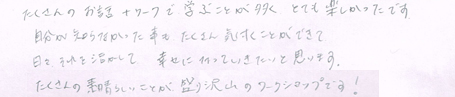 たくさんのお話+ワークで学ぶことが多く、とても楽しかったです
自分が知らなかった事もたくさん気付くことができて
日々それを活かして 幸せに行っていきたいと思います。
たくさんの素晴らしいことが盛り沢山のワークショップです!